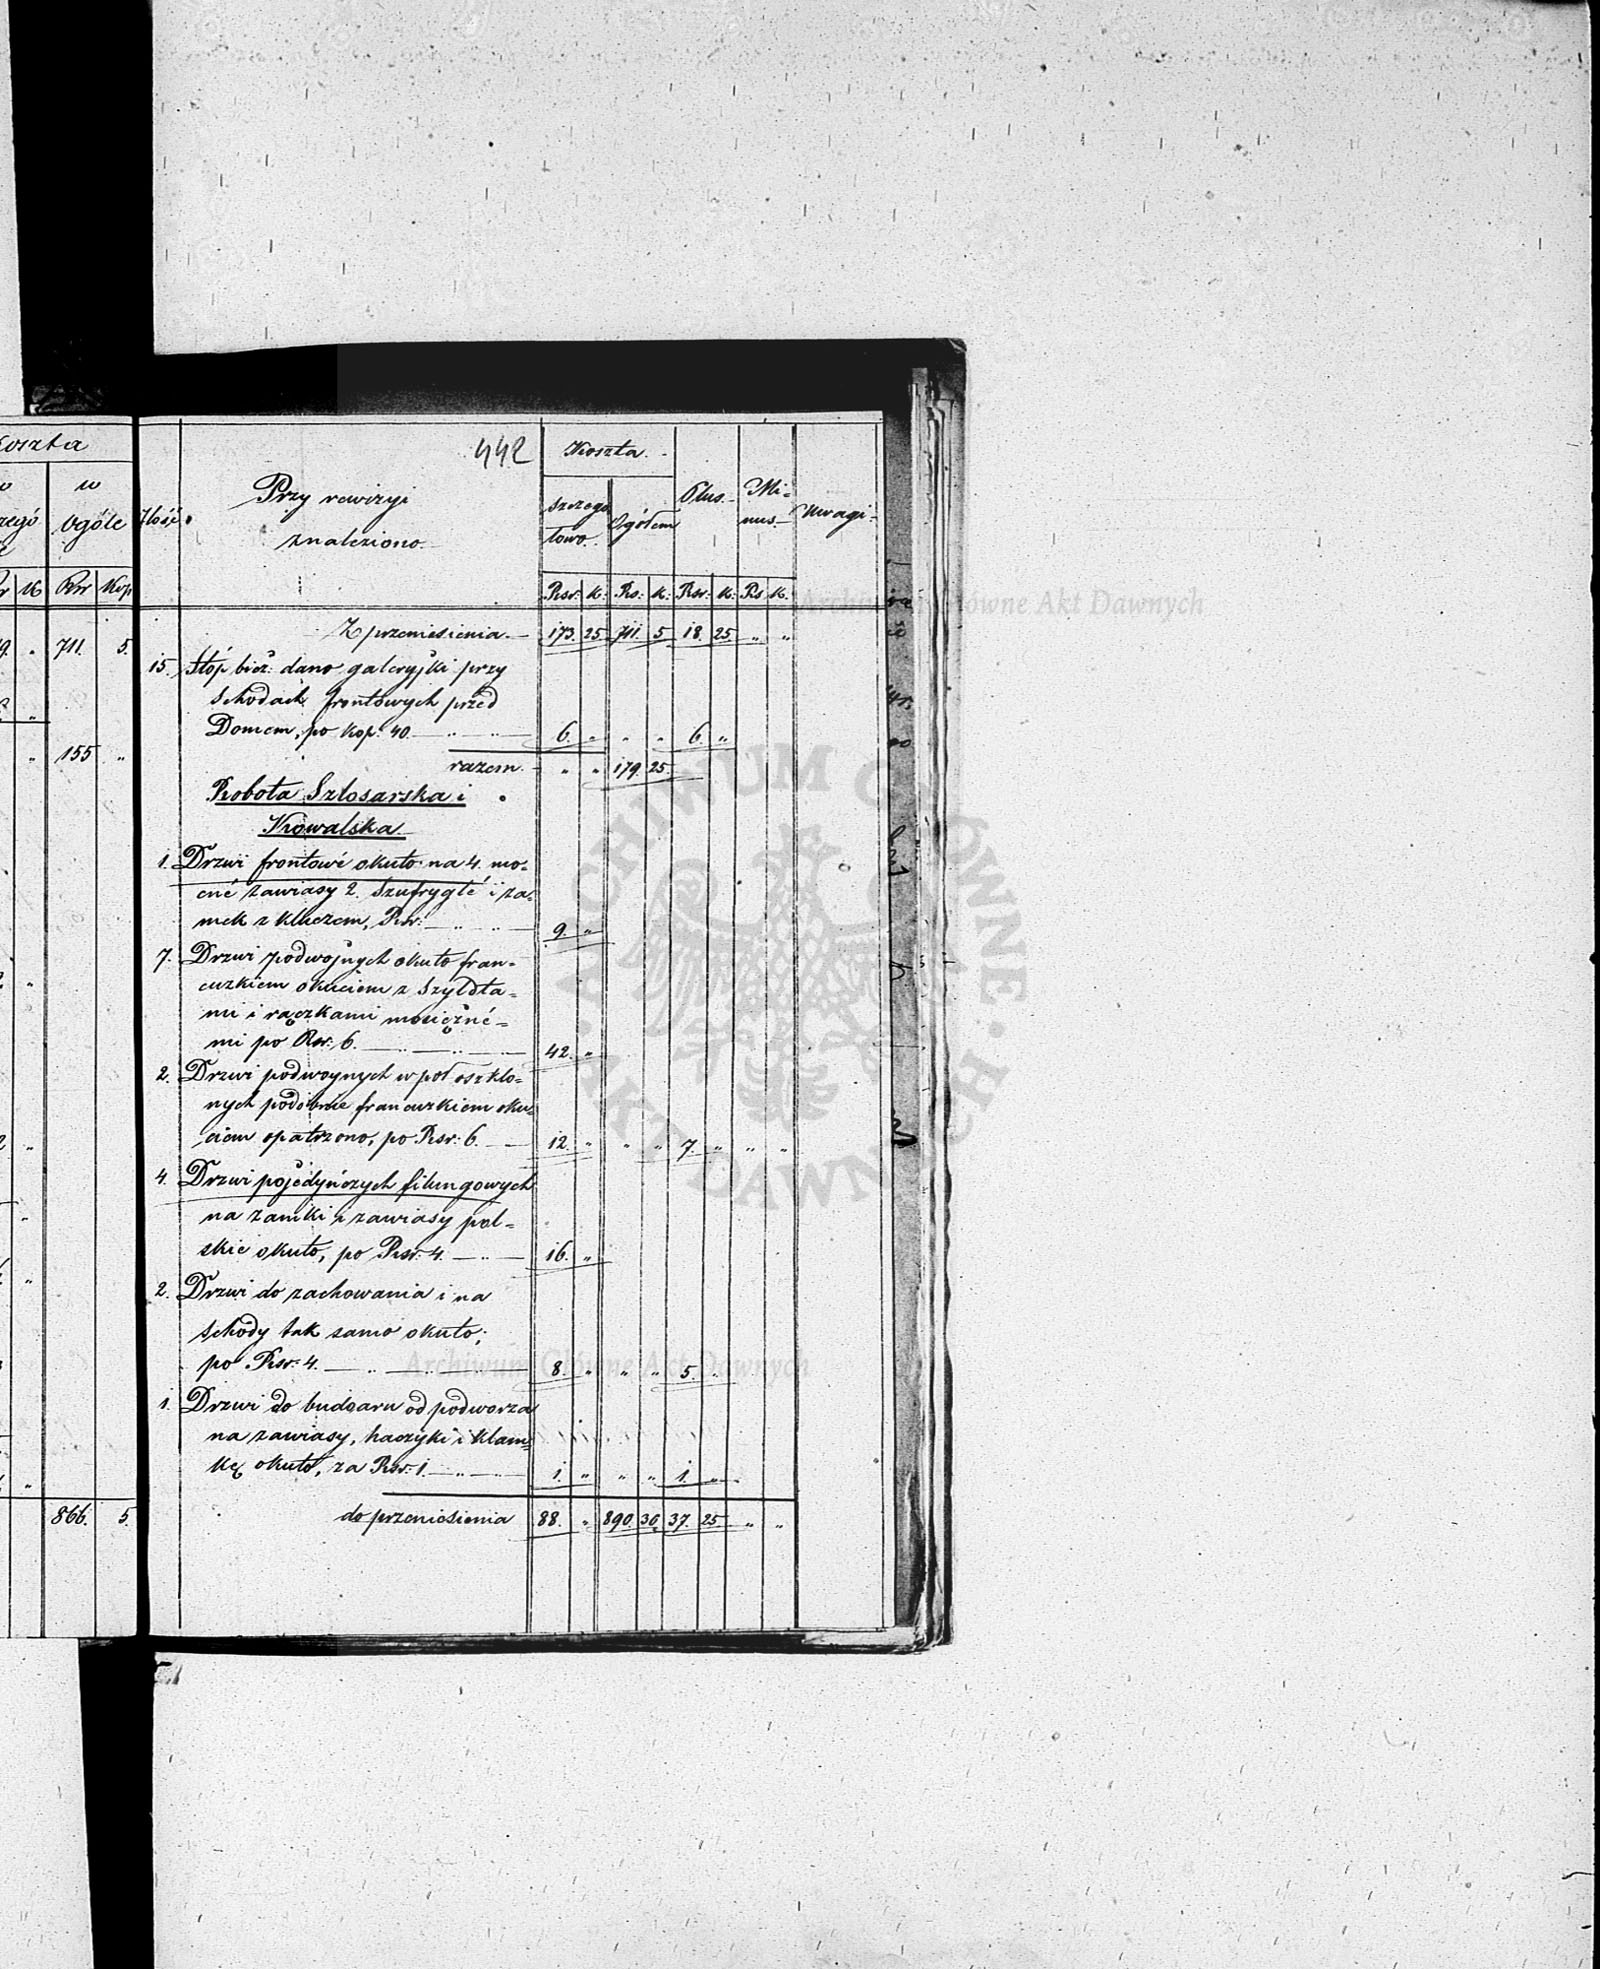 Koszta
w
ogóle
K Rsr Kop
711. 5.
155 "
866. 5.
442
Ilość
Przy rewizyi
znaleziono
Koszta.
szczegó
łowo.
Ogółem
Plus.
Mi=
nus.
Uwagi
Rsr. K. Rs. K. Rsr. K. Rs K.
Z przeniesienia 173. 25 711. 5 18. 25. " "
15. Stóp bież: dano galeryjki przy
schodach frontowych przed
Domem, po kop. 40. 6. " " " 6. "
razem. " " 179. 25.
Robota Szlosarska i
Kowalska
1. Drzwi frontowé okuto na 4. mo=
cné zawiasy 2. Szufryglé i za=
mek z kluczem, Rsr. 9. "
7. Drzwi podwojnych okuto fran=
cuzkiem okuciem z Szyldta=
mi i rączkami mosiężné=
mi po Rsr. 6. 42. "
2. Drzwi podwoynych w poł oszklo=
nych podobnie francuzkiem oku=
ciem opatrzono, po Rsr. 6. 12. " " " 7. " " "
4. Drzwi pojedyńczych filungowych
na zamki i zawiasy pol=
skie okuto, po Rsr. 4. 16. "
2. Drzwi do zachowania i na
schody tak samo okuto;
po Rsr. 4. 8. " " " 5. "
1. Drzwi do budoaru od podworza
na zawiasy, haczyki i klam=
kę okuto, za Rsr. 1. 1. " " " 1. "
do przeniesienia 88. " 890. 30. 37. 25. " "
Archiwum Główne Akt Dawnych
ARCHIWUM GŁÓWNE AKT DAWNYCH
Archiwum Główne Akt Dawnych